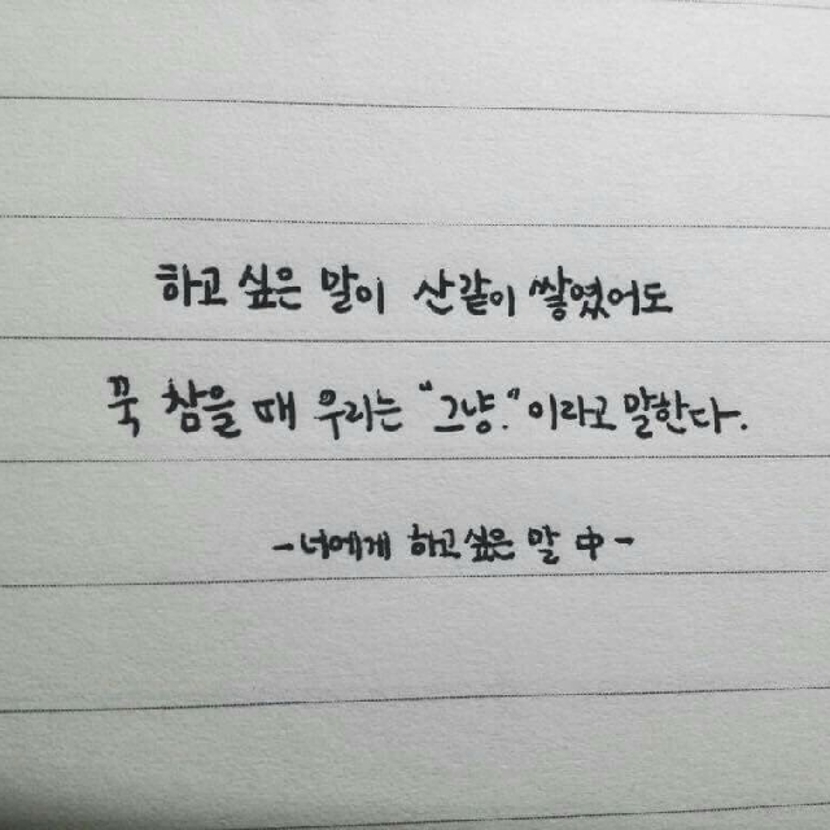 하고 싶은 말이 산같이 쌓였어도
꾹 참을 때 우리는 "그냥."이라고 말한다.
-너에게 하고싶은 말 中-